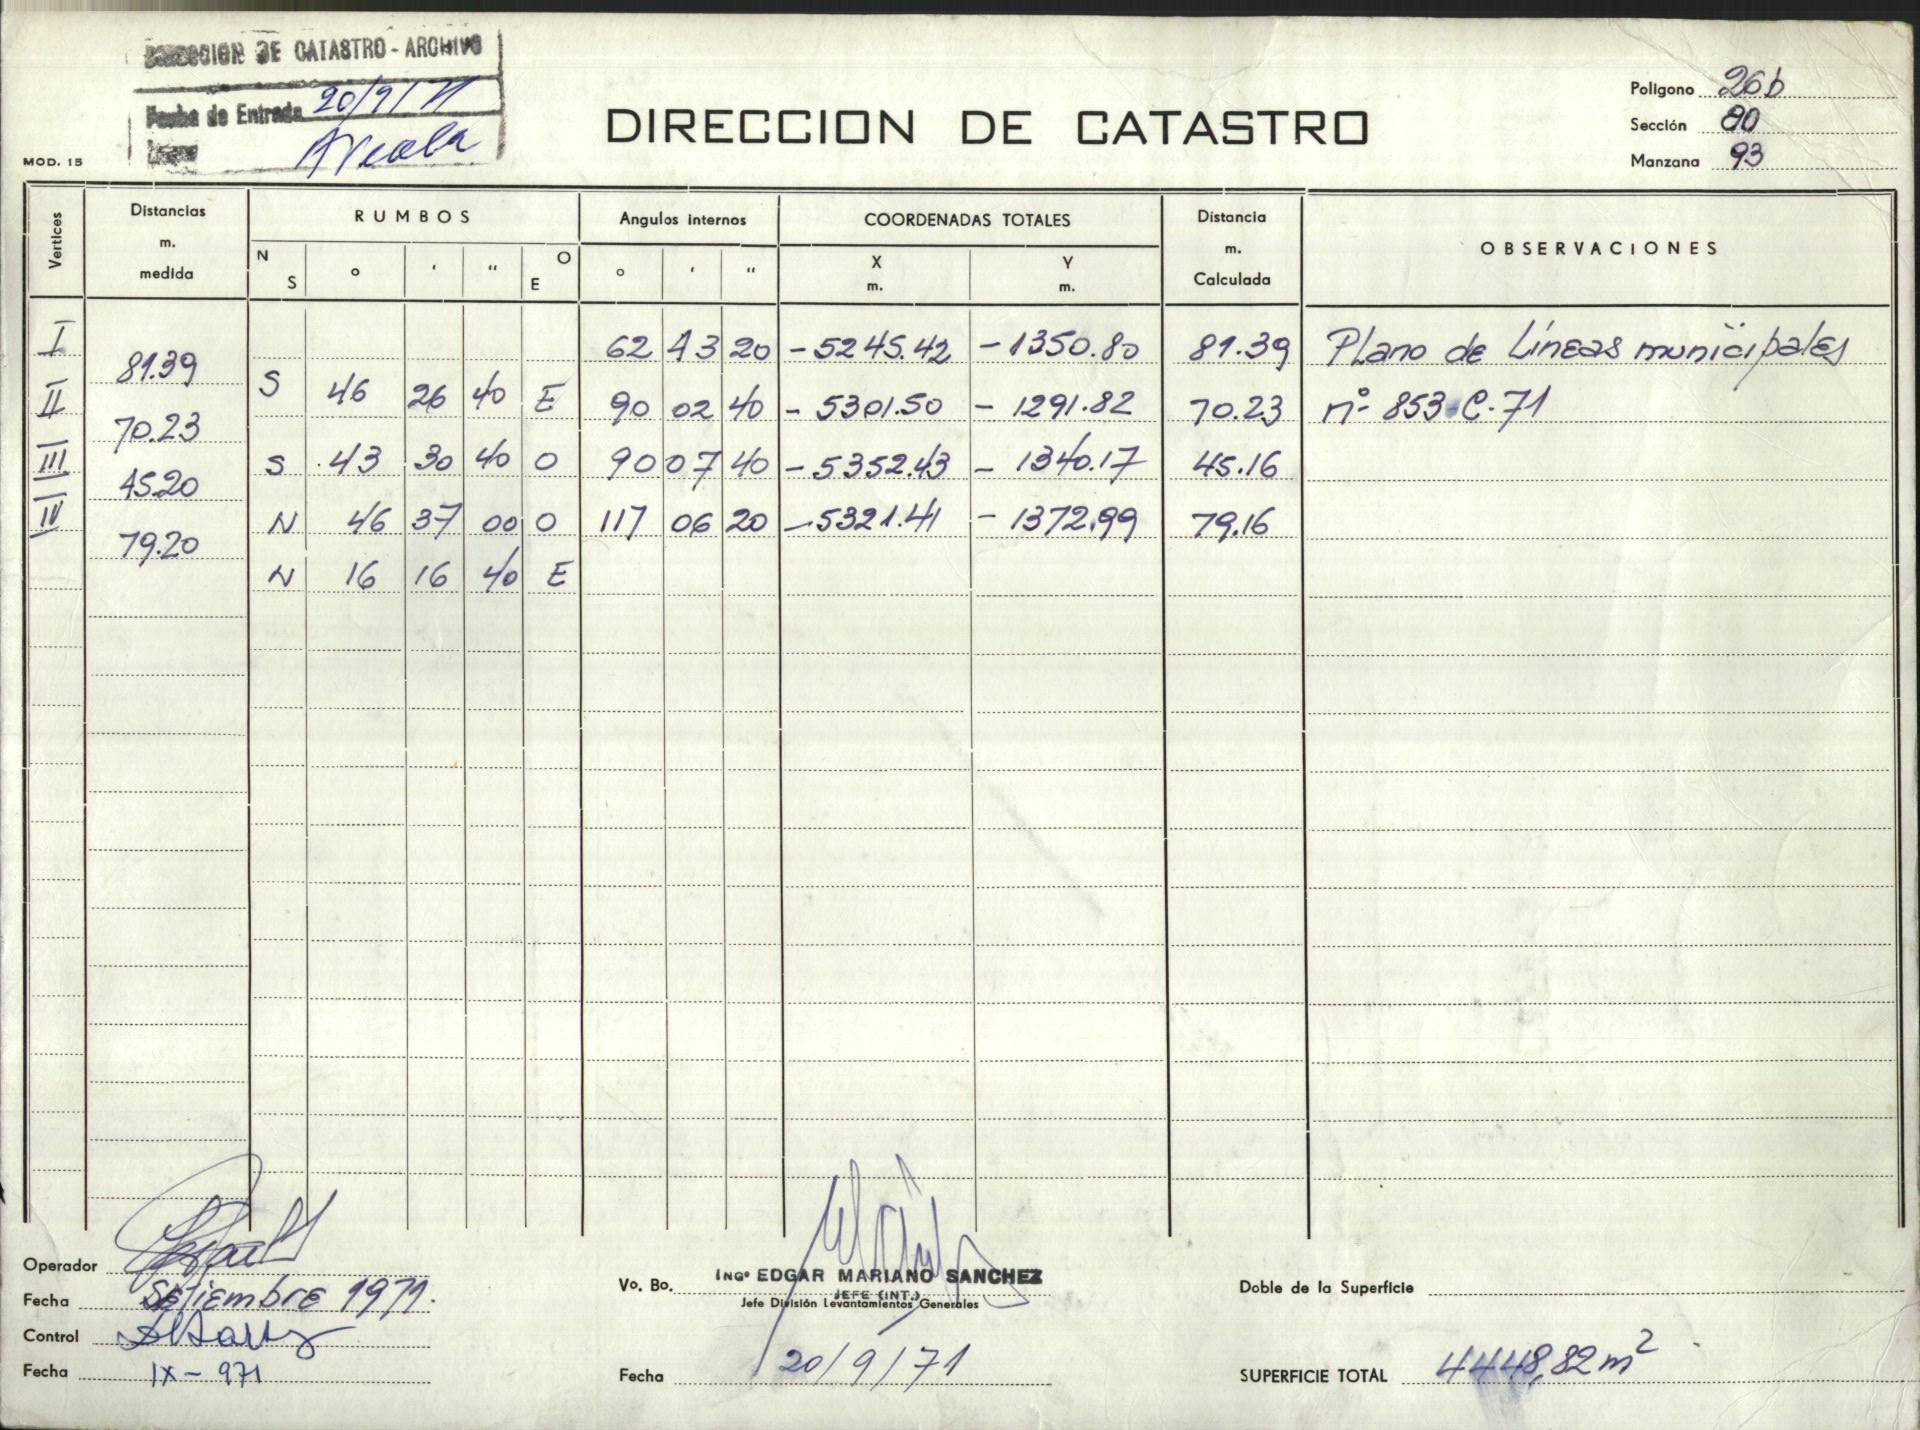 DIRECCION DE CATASTRO - ARCHIVO
Fecha de Entrada 20/9/71
MOD. 15
DIRECCION DE CATASTRO
Poligono 26b
Sección 80
Manzana 93
Vertices Distancias m. medida RUMBOS Angulos internos COORDENADAS TOTALES Distancia m. Calculada OBSERVACIONES
N S ° ' " O E ° ' " X m. Y m.
I 62 43 20 -5245.42 -1350.80 81.39 Plano de Líneas municipales
81.39 S 46 26 40 E
II 90 02 40 -5301.50 -1291.82 70.23 nº 853-C-71
70.23 S 43 30 40 O
III 90 07 40 -5352.43 -1340.17 45.16
45.20 N 46 37 00 O
IV 117 06 20 -5321.41 -1372.99 79.16
79.20 N 16 16 40 E
Operador
Fecha Setiembre 1971.
Control
Fecha IX-971
Vo. Bo. INGº EDGAR MARIANO SANCHEZ
JEFE (INT.)
Jefe División Levantamientos Generales
Fecha 20/9/71
Doble de la Superficie
SUPERFICIE TOTAL 4448,82 m²